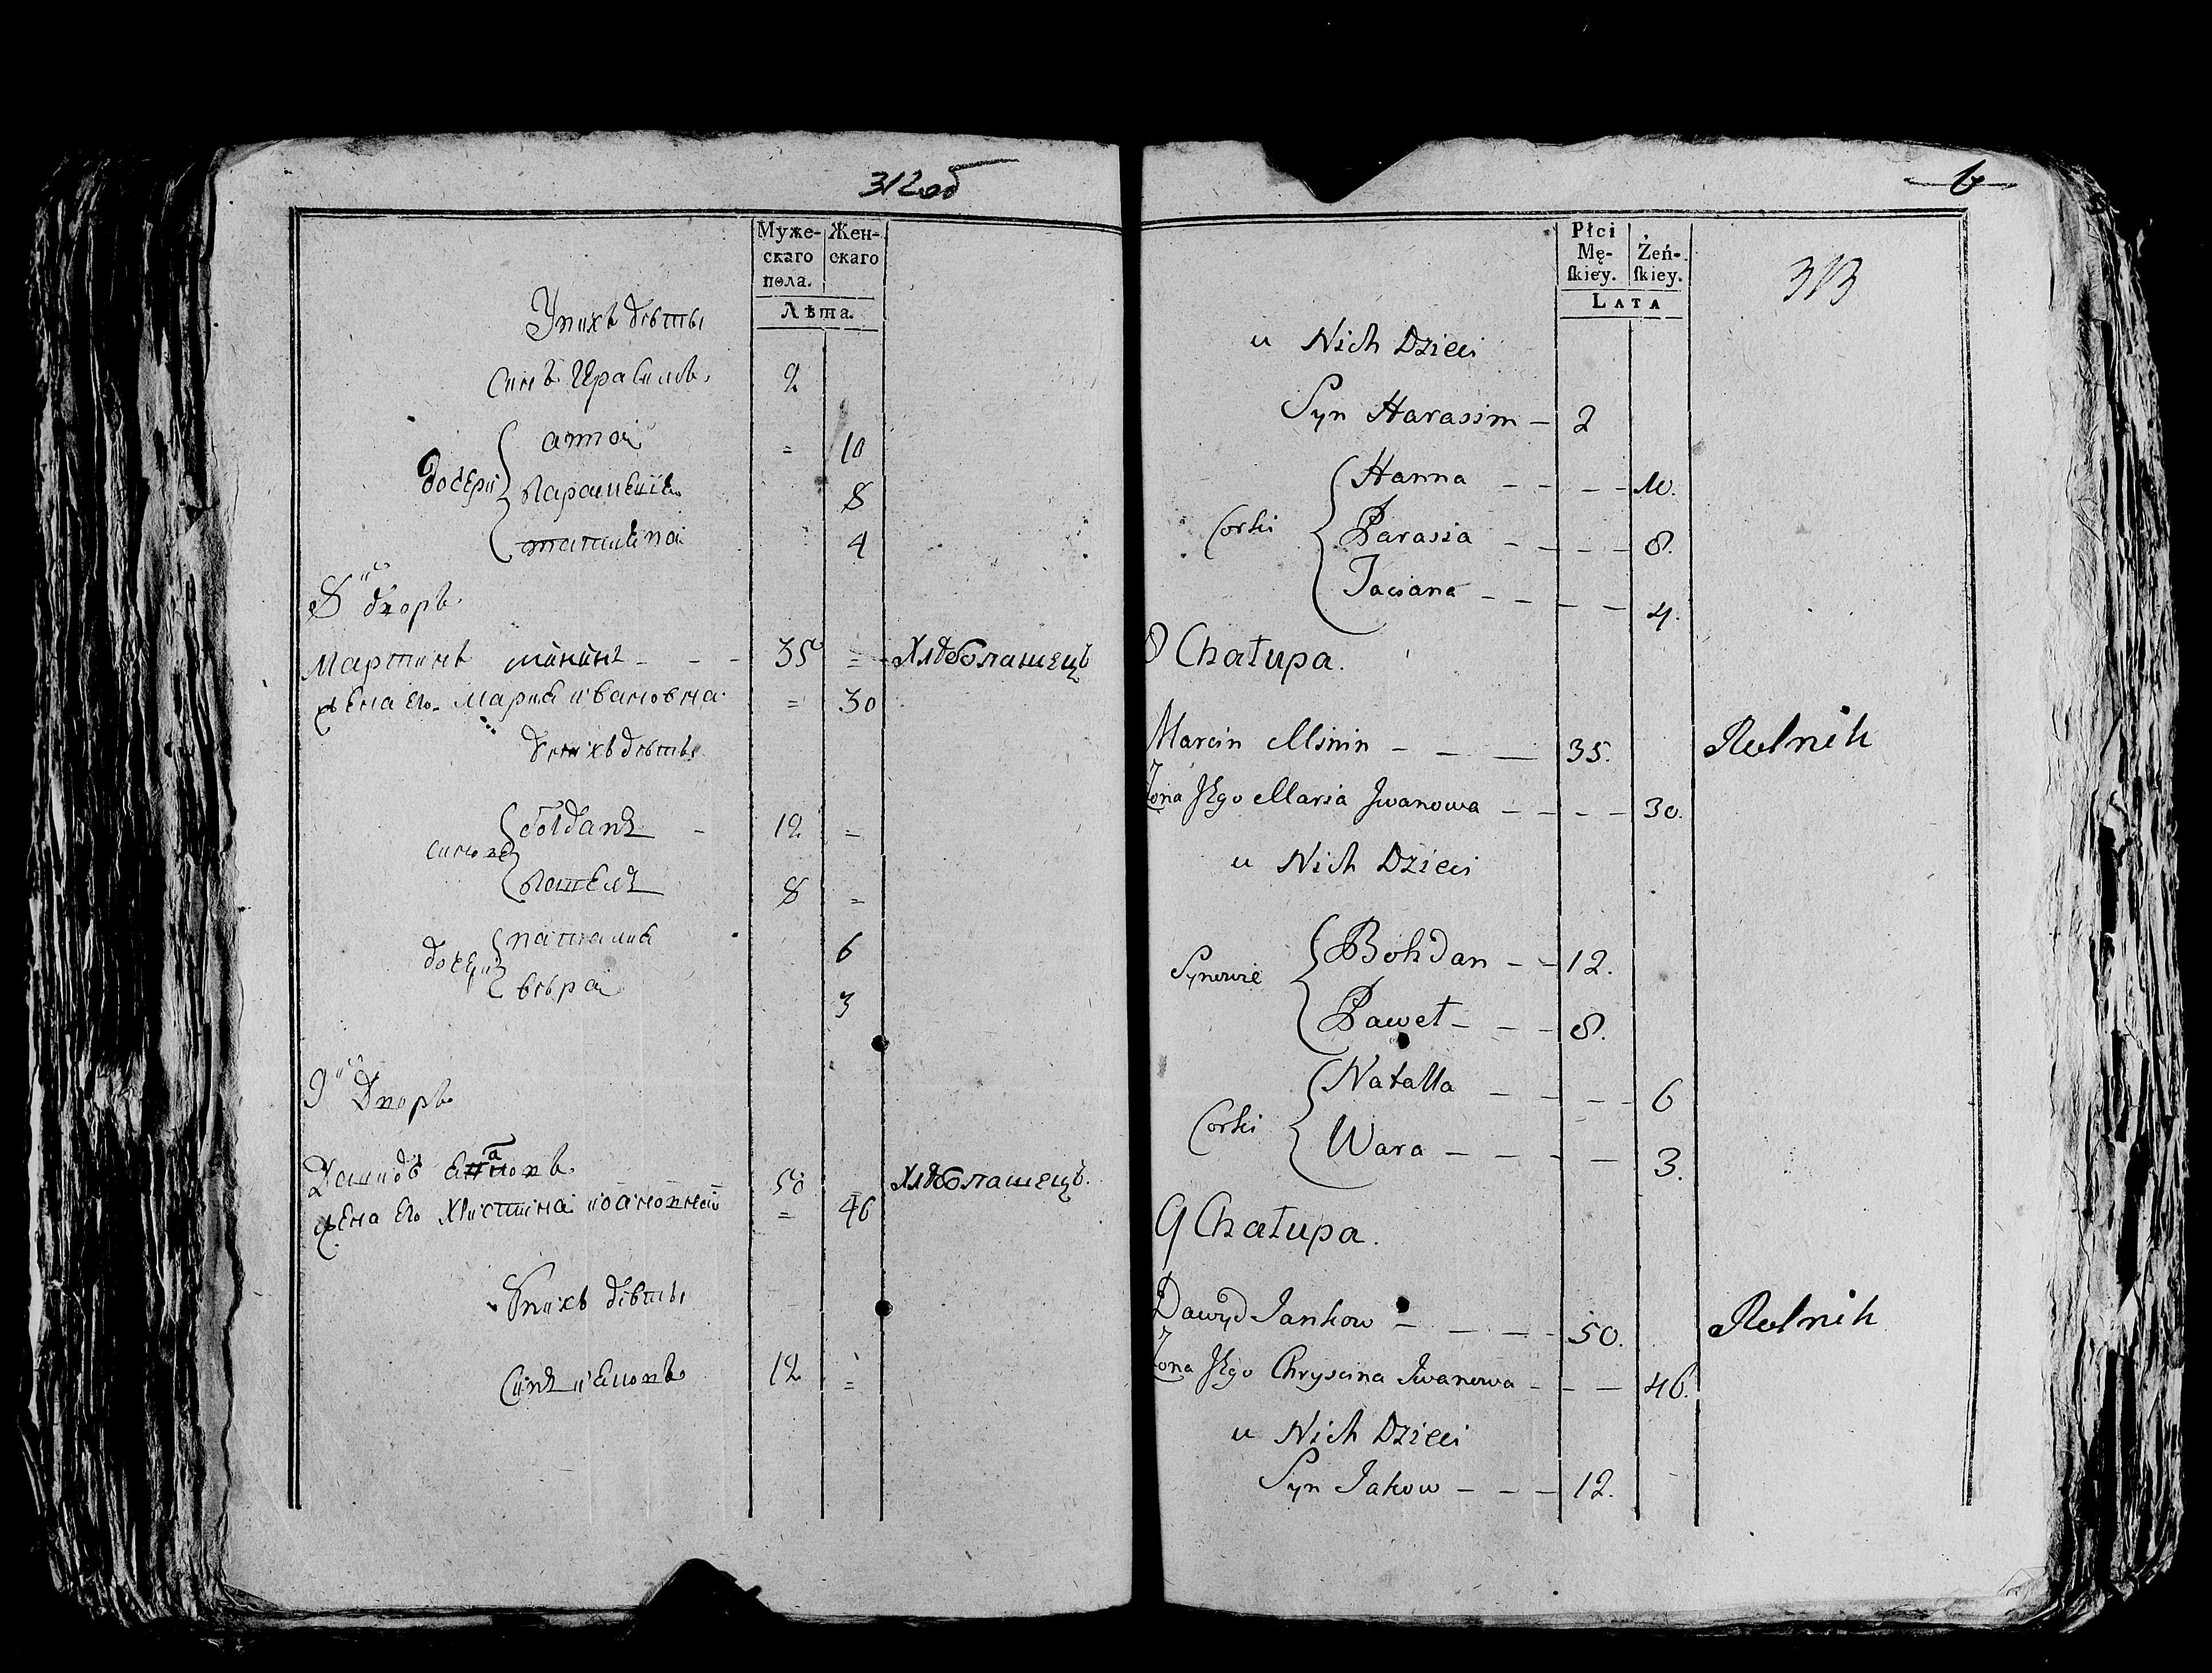 312об
Муже-
скаго
пола.
Жен-
скаго
Лѣта.
У нихъ дѣти
Синъ Ирасимъ 2
дочери
анна = 10
Парасκевія 8
татияна 4
8 и дворъ
Мартинъ мининъ - - - 35 = Хлѣбопашецъ
жена его Мария ивановна = 30
У нихъ дѣти
синове
богданъ - 12 =
Павелъ 8 =
дочери
наталия 6
вѣра 3
9 и Дворъ
Давидъ 50 Хлѣбопашецъ.
жена его Христина = 46
У нихъ дѣти
Синъ 12 =
6
313
Płci
Mę-
ſkiey.
Żeń-
ſkiey.
LATA
u Nich Dzieci
Syn Harasim - 2
Corki
Hanna - - - - 10.
Parasia - - - - 8.
Taciana - - - - 4.
8 Chałupa.
Marcin Minin - - - 35. Rolnik
Żona Jego Maria Jwanowa - - - - 30.
u Nich Dzieci
Synowie
Bohdan - - 12.
Paweł - - - 8.
Corki
Natalla - - - - 6
Wara - - - - 3.
9 Chałupa.
Dawyd Jankow - - - - 50. Rolnik
Żona Jego Chryscina Jwanowa - - - 46.
u Nich Dzieci
Syn Jakow - - - 12.